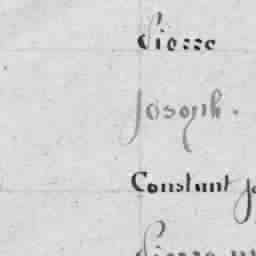 Pierre
Joseph.
Constant jo
Pierre m